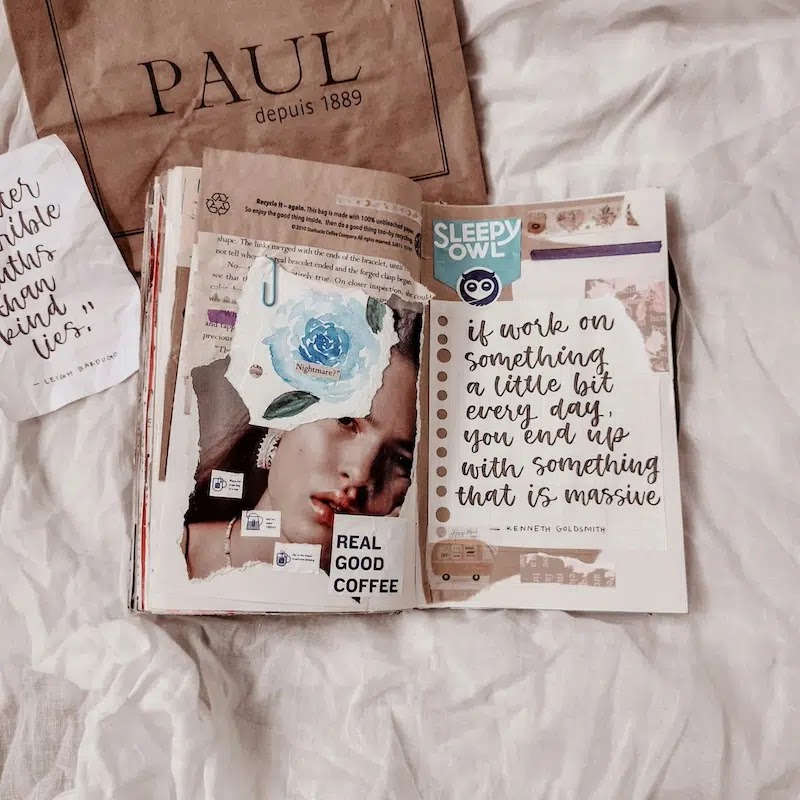 PAUL
depuis 1889
than
kind
lies."
- LEIGH BARDUGO
Recycle it – again. This bag is made with 100% unbleached paper.
So enjoy the good thing inside, then do a good thing too–by recycling
shape. The links merged with the ends of the bracelet, until
not tell where
real bracelet ended and the forged clasp began.
true. On closer
Nightmare?"
REAL
GOOD
COFFEE
SLEEPY
OWL
if work on
something
a little bit
every day,
you end up
with something
that is massive
— KENNETH GOLDSMITH